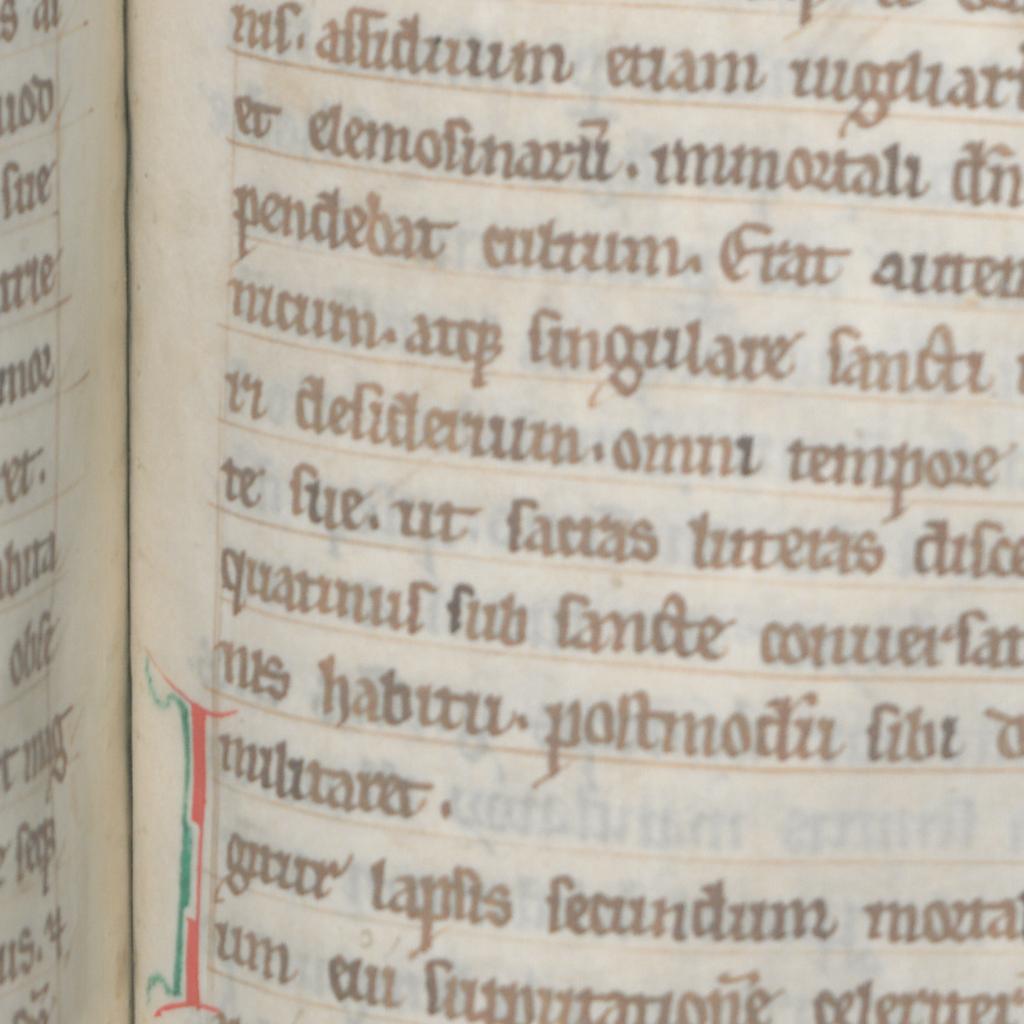 nis. assiduum etiam uigiliar
et elemosinarū. immortali dn̄
pendebat cultum. Erat autem
nicum. atq; singulare sancti
ri desiderium. omni tempore
te sue. ut sacras litteras disce
quatinus sub sancte conuersat
nis habitu. postmodū sibi
militaret.
Igitur lapsis secundum morta
um eui supputationē celeriter